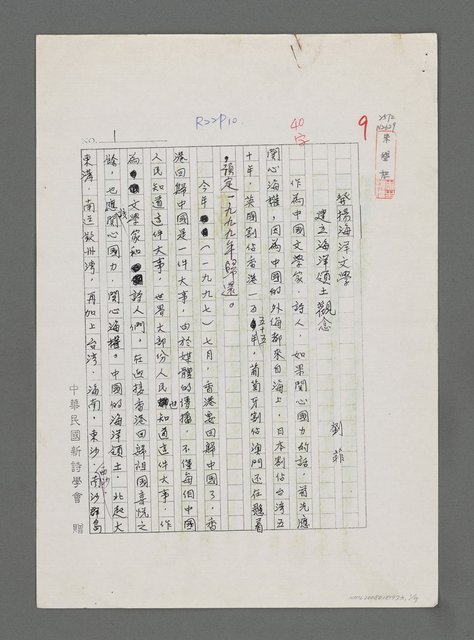 R22P10.
40字
9
NO. 1
發揚海洋文學
建立海洋領土觀念
劉菲
作為中國文學家、詩人,如果關心國力的話,首先應
關心海權,因為中國的外侮都來自海上,日本割佔台湾五
十年,英國割佔香港一五五十五年,葡萄牙割佔澳門還在懸著
,預定一九九九年歸還。
今年(一九九七)七月,香港要回歸中國了,香
港回歸中國是一件大事,由於媒體的傳播,不僅每個中國
人民知道這件大事,世界大部份人民也知道這件大事,作
為文學家和詩人們,在迎接香港回歸祖國喜悅之
餘,也應該關心國力、關心海權。中國的海洋領土,北起大
東溝,南迄欽州湾,再加上台湾、海南、東沙、西沙、南沙群島
中華民國新詩學會 贈